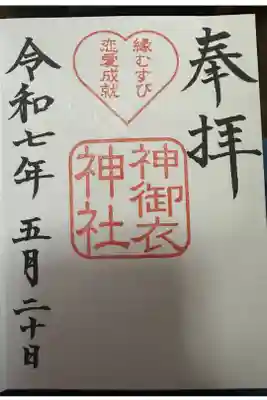 奉拝
縁むすび
恋愛成就
神御衣
神社
令和七年 五月二十日